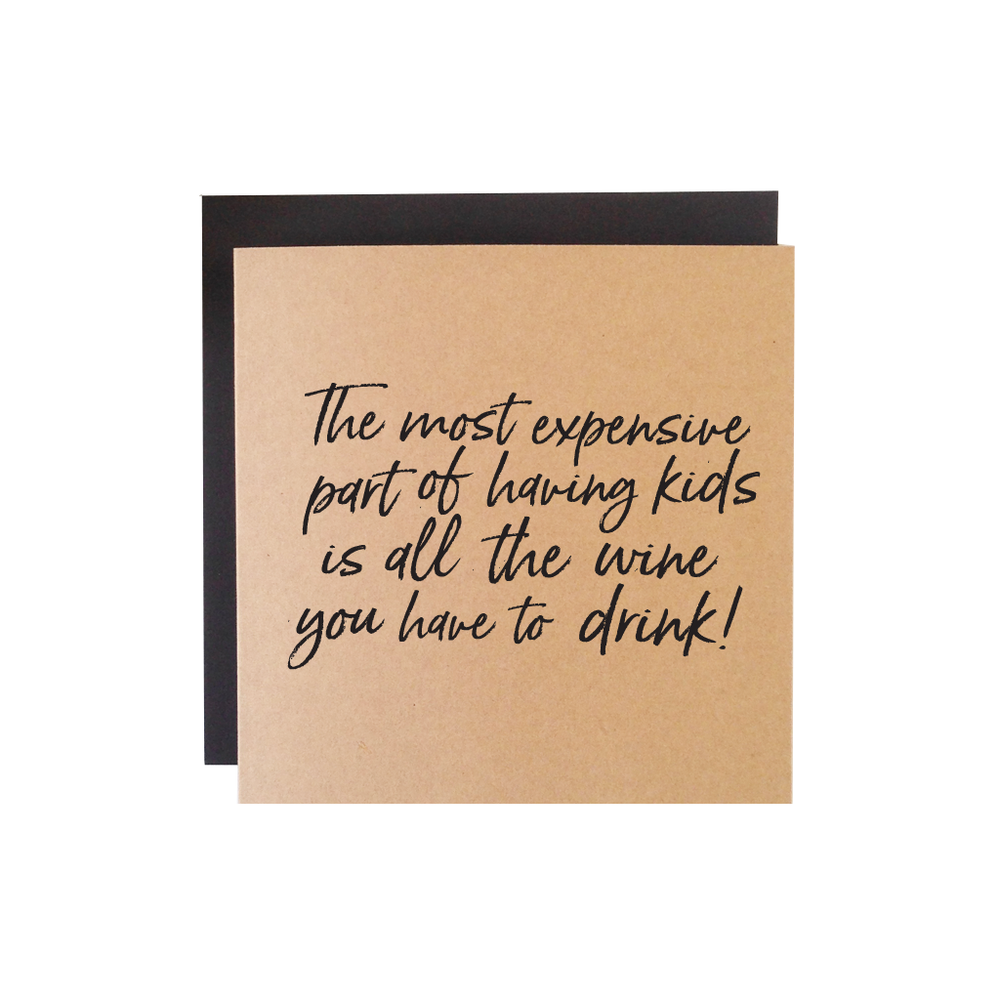 The most expensive
part of having kids
is all the wine
you have to drink!